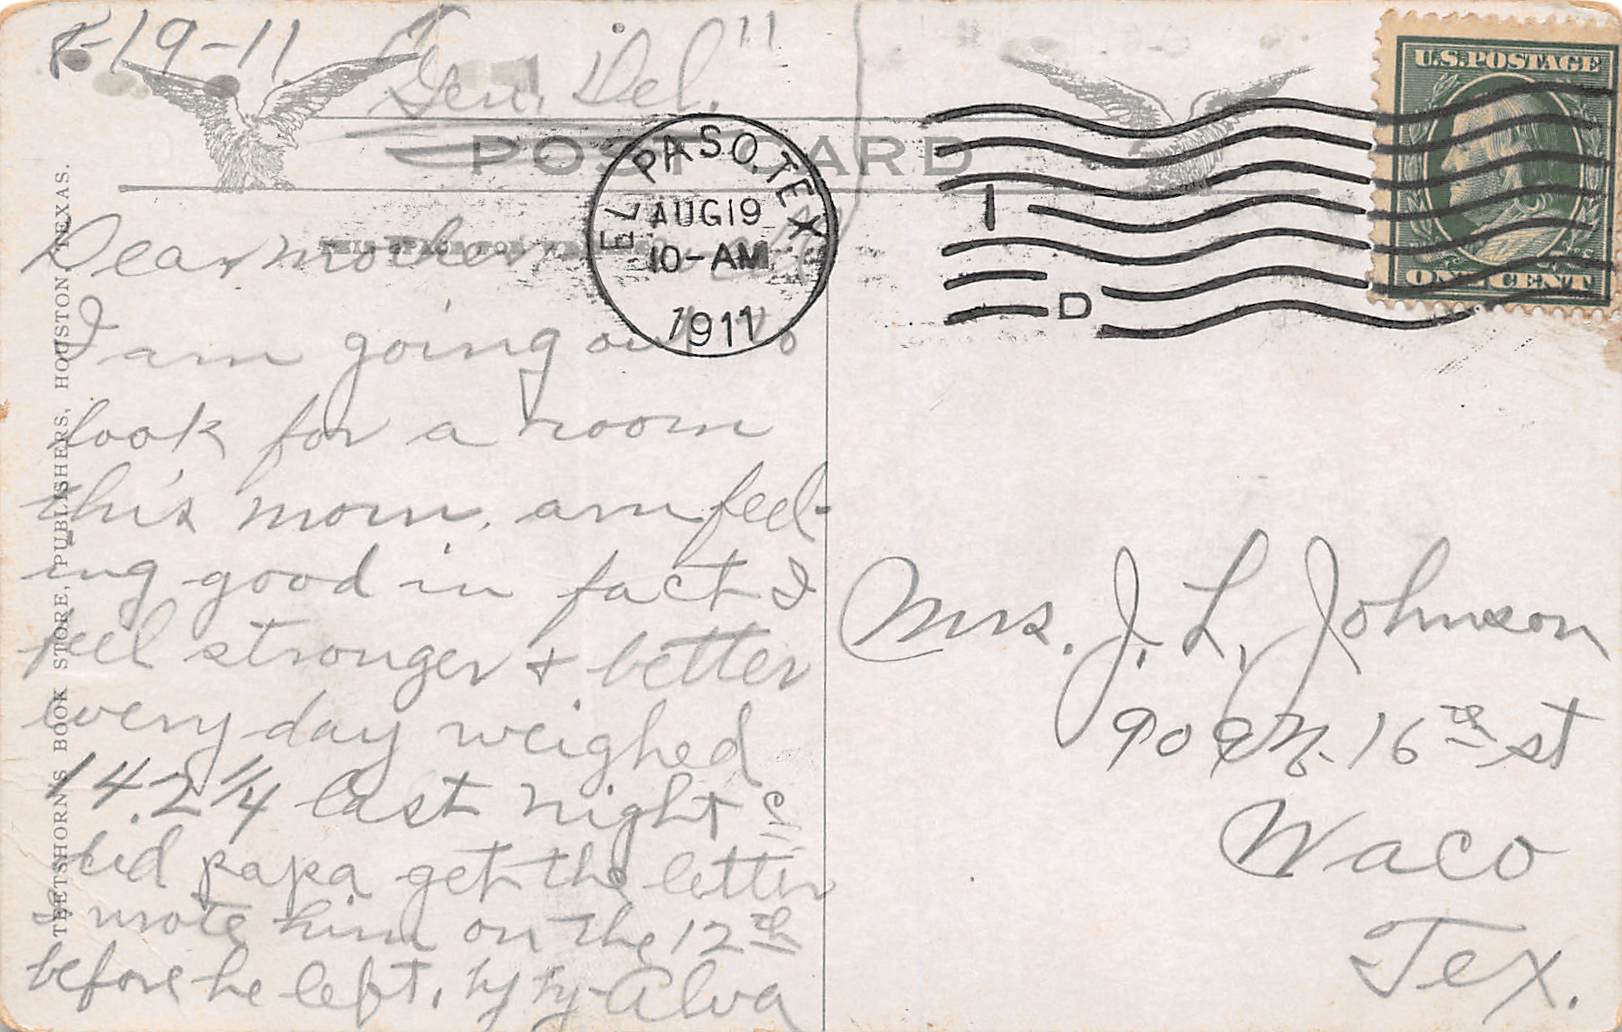 8-19-11 Gen. Del."
U.S. POSTAGE
ONE CENT
POST CARD
EL PASO, TEX.
AUG 19
10-AM
1911
1
D
TEETSHORN'S BOOK STORE, PUBLISHERS, HOUSTON, TEXAS.
THIS SPACE FOR
Dear mother
I am going out to
look for a room
this morn. am feel-
ing good in fact I
feel stronger + better
every day weighed
142 1/4 last night
did papa get the letter
I wrote him on the 12th
before he left. Alva
Mrs. J. L. Johnson
909 N. 16th st
Waco
Tex.